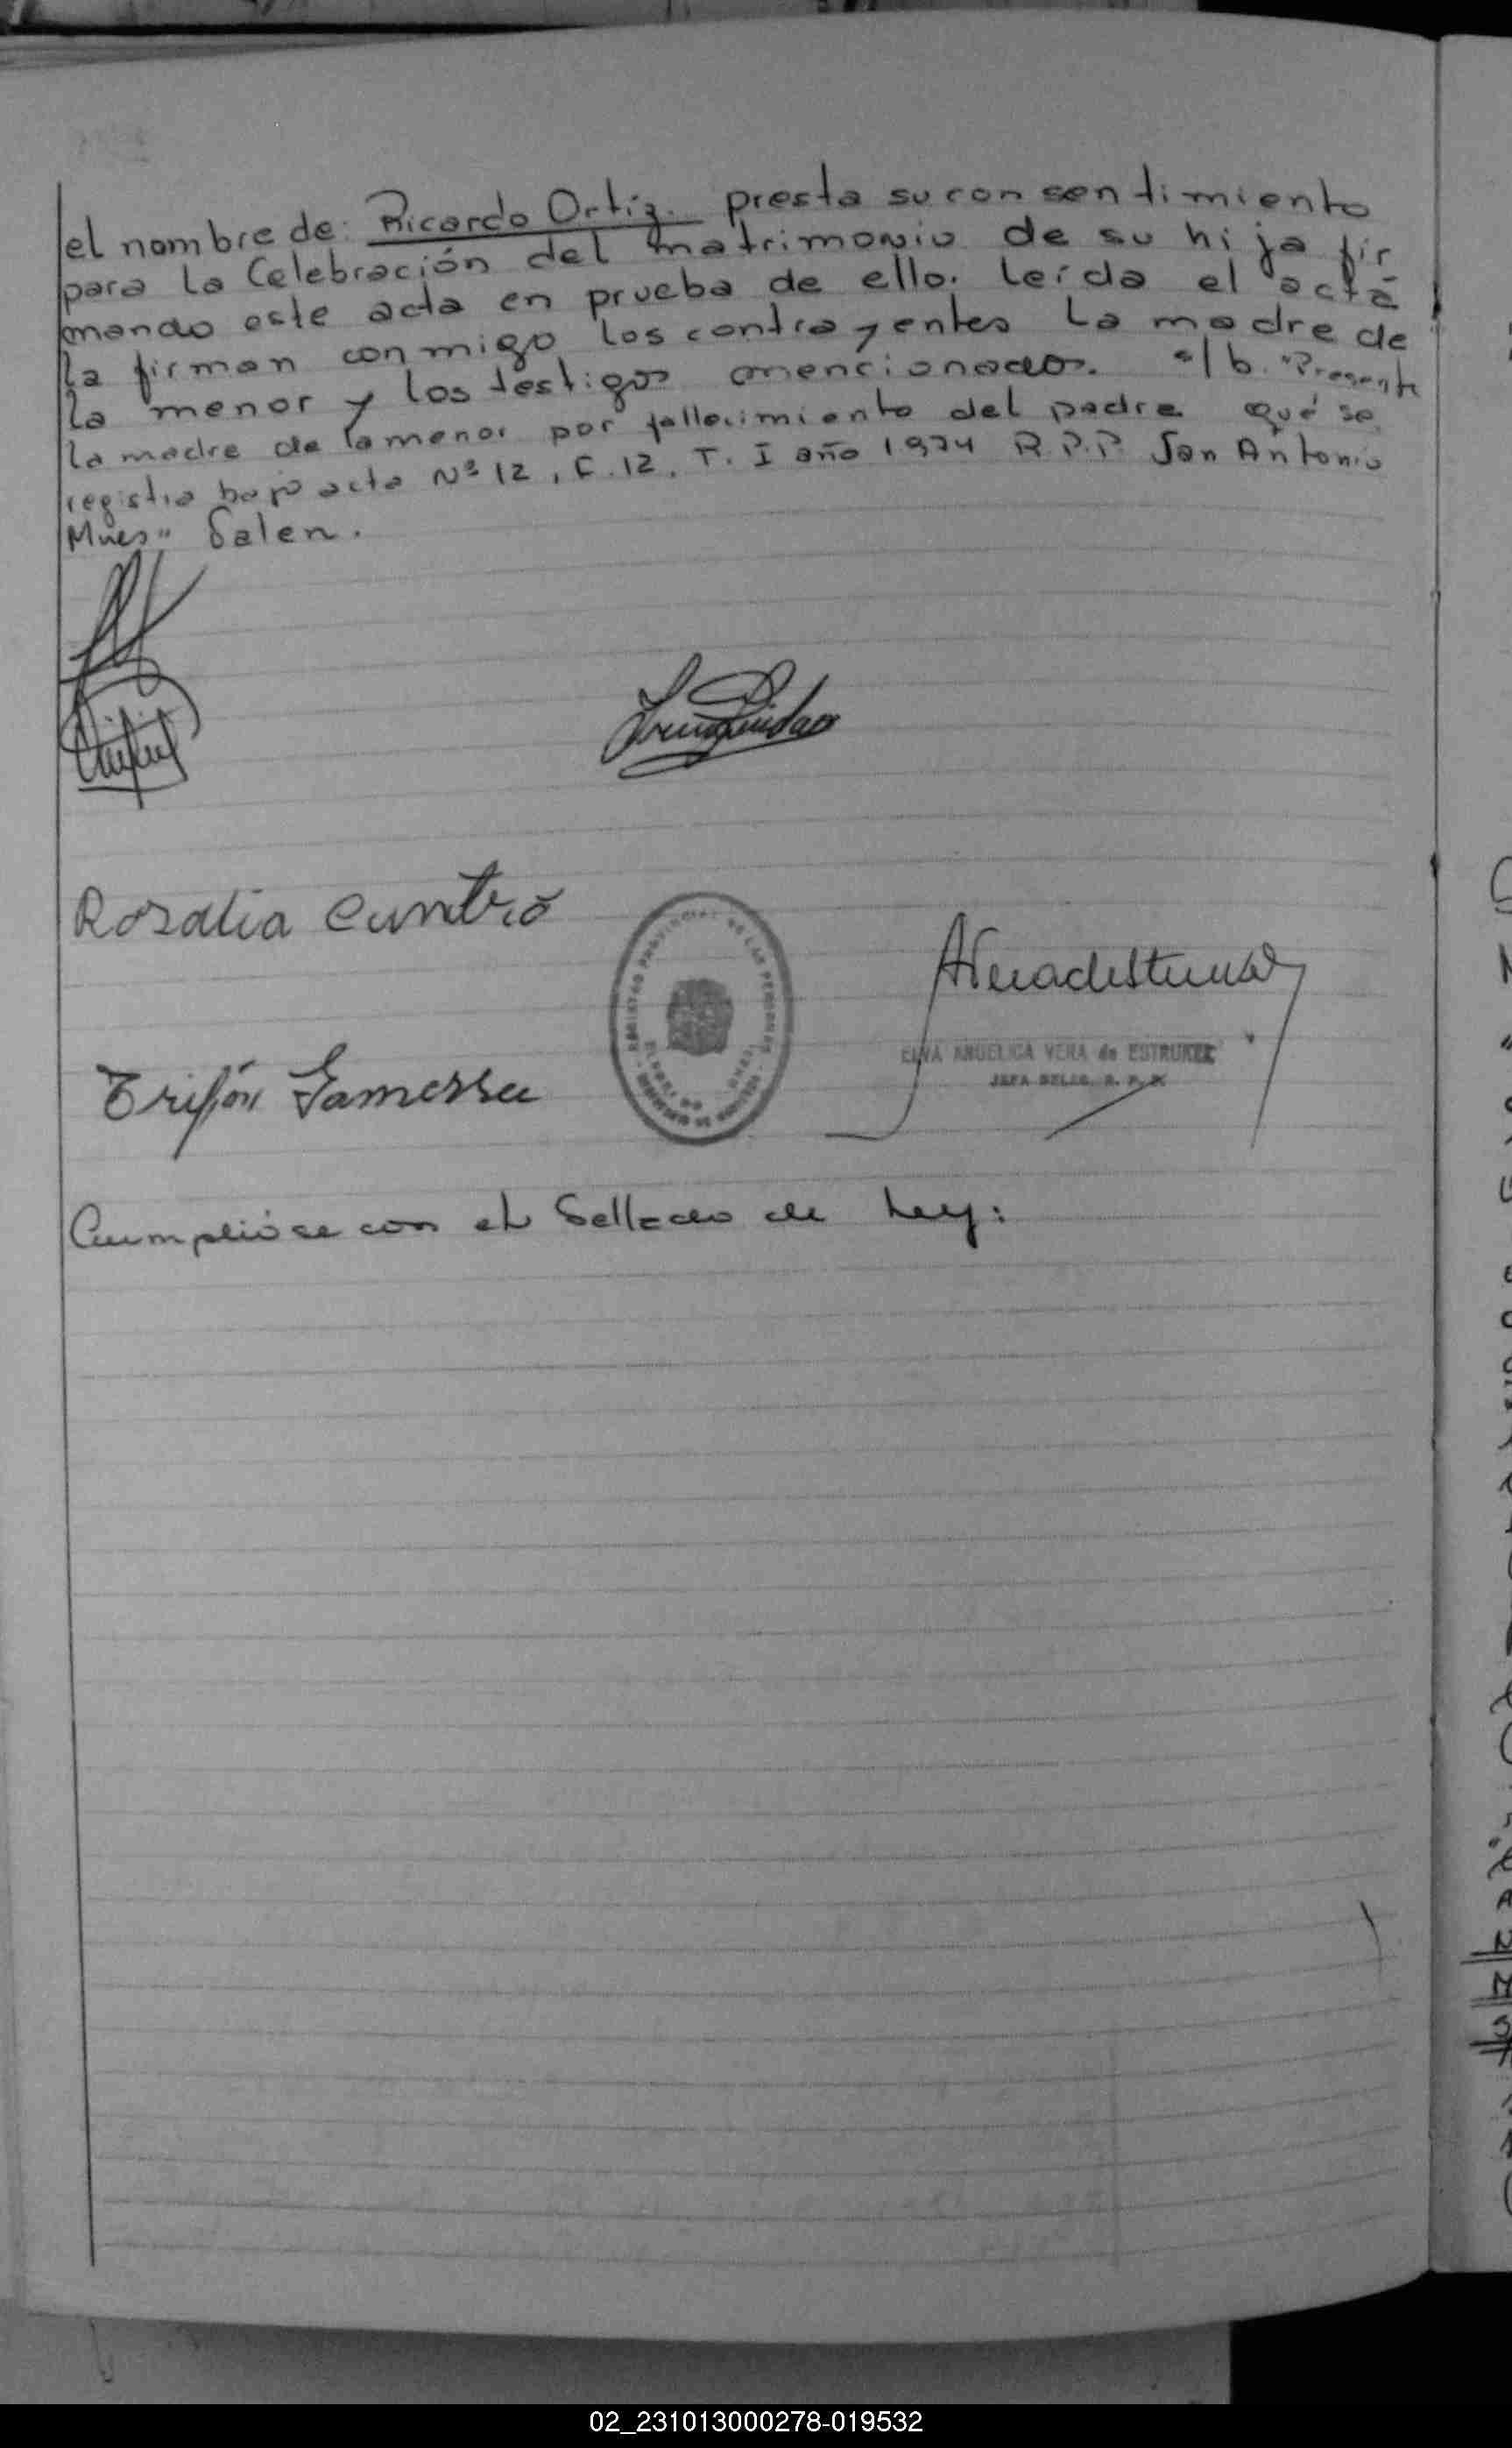 el nombre de: Ricardo Ortiz. presta su consentimiento
para la Celebración del matrimonio de su hija fir
mando este acta en prueba de ello. leída el acta
la firman conmigo los contrayentes la madre de
la menor y los testigos mencionados. s/b. "Presente
la madre de la menor por fallecimiento del padre que se
registra bajo acta Nº 12, F. 12, T. I año 1974 R.P.P. San Antonio
Mnes" Valen.
Rosalia
REGISTRO PROVINCIAL DE LAS PERSONAS
Trifón
ELVA ANGELICA VERA de ESTRUKEL
JEFA DELEG. R. P. P.
Cumplióse con el Sellado de Ley:
02_231013000278-019532